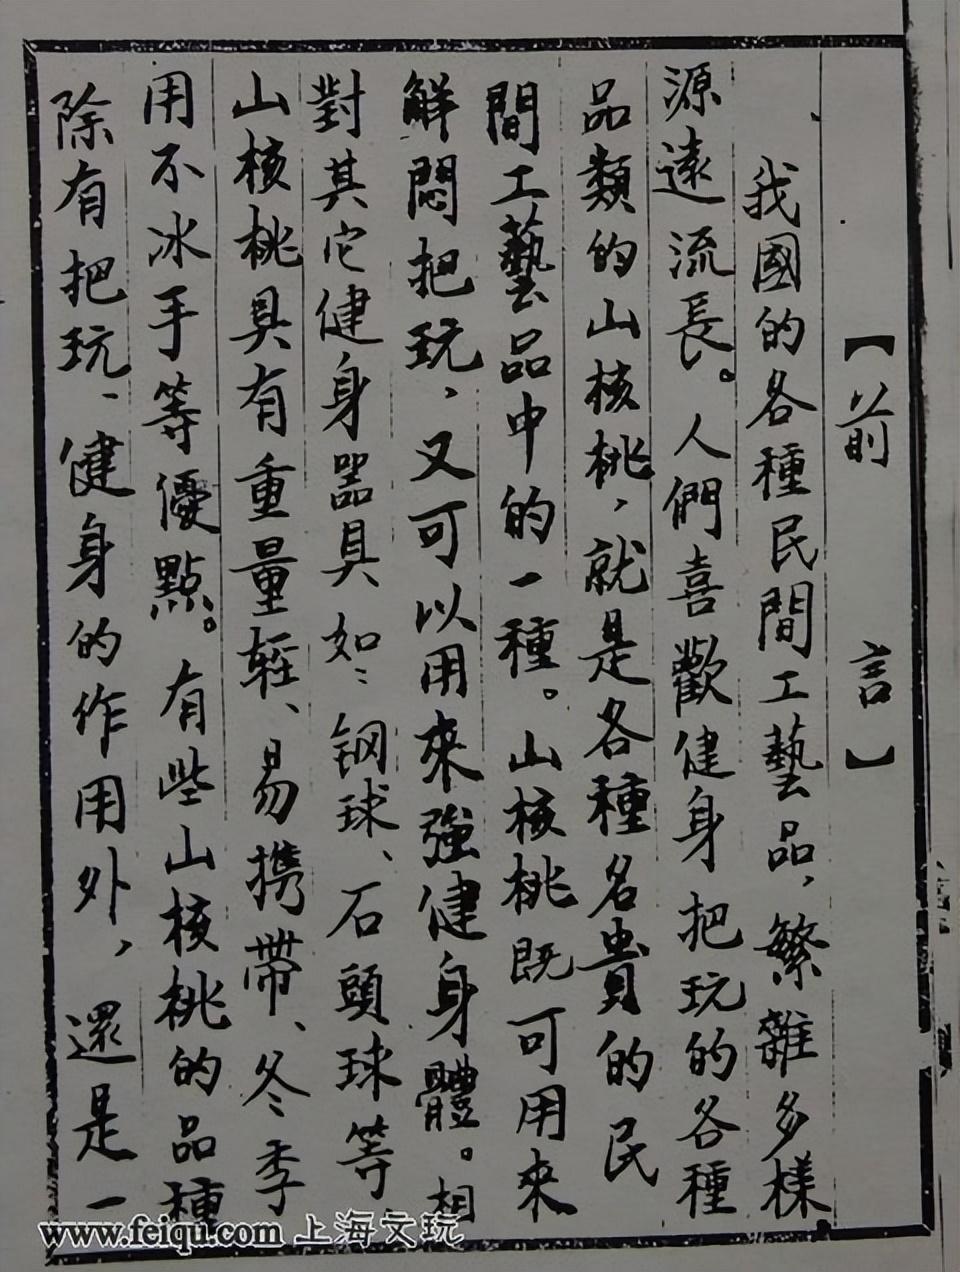 【前言】
我國的各種民間工藝品，繁雜多樣，
源遠流長。人們喜歡健身把玩的各種
品類的山核桃，就是各種名貴的民
間工藝品中的一種。山核桃既可用來
解悶把玩、又可以用來強健身體。相
對其它健身器具如：钢球、石頭球等
山核桃具有重量輕、易携帶、冬季
用不冰手等優點。有些山核桃的品種
除有把玩、健身的作用外，還是一
www.feiqu.com 上海文玩